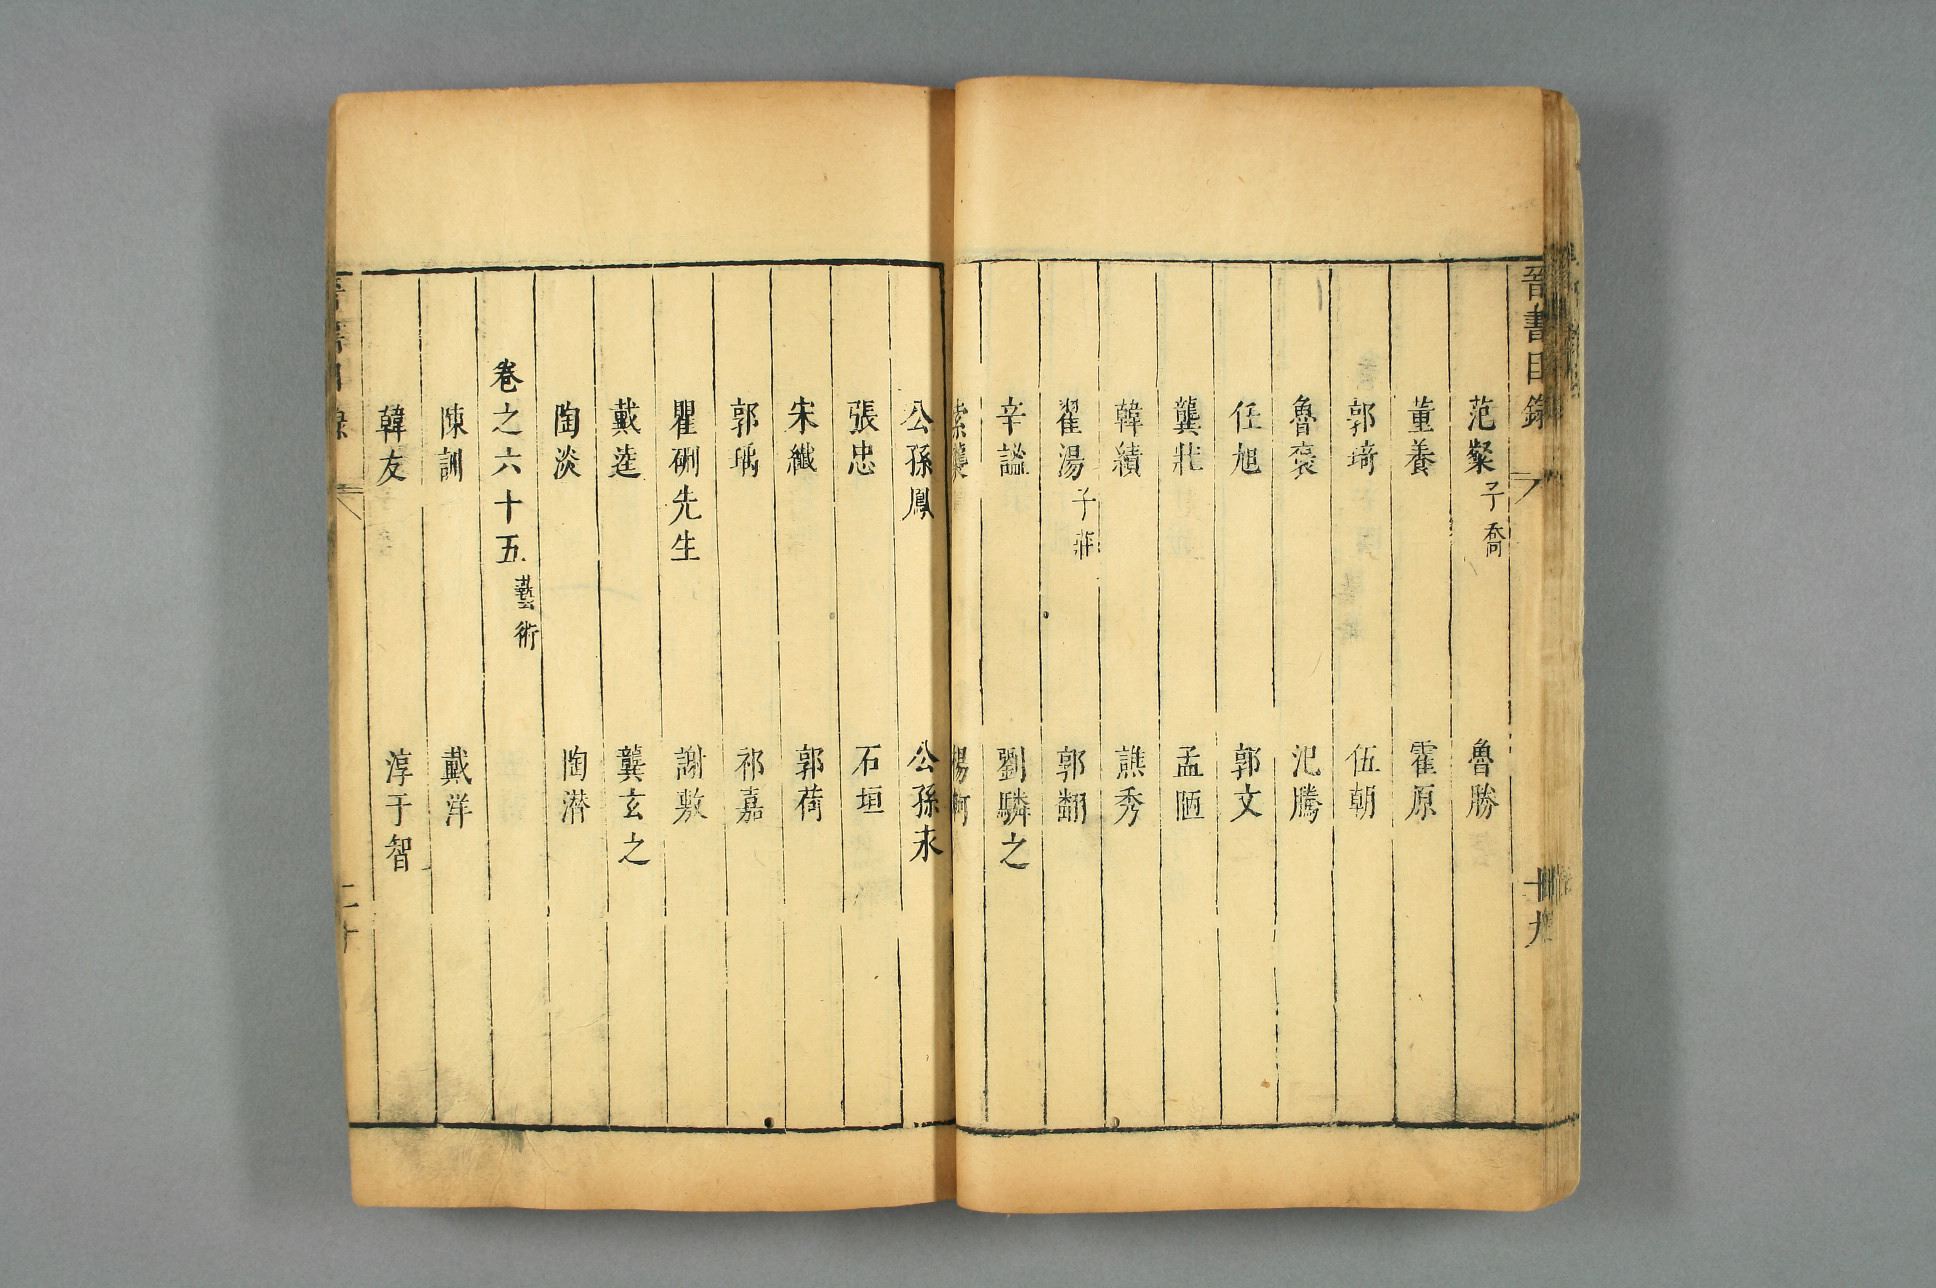 晉書目錄
十九
范粲子喬 魯勝
董養 霍原
郭琦 伍朝
魯褒 氾騰
任旭 郭文
龔壯 孟陋
韓績 譙秀
翟湯子莊 郭翻
辛謐 劉驎之
索襲 楊軻
公孫鳳 公孫永
張忠 石垣
宋纖 郭荷
郭瑀 祁嘉
瞿硎先生 謝敷
戴逵 龔玄之
陶淡 陶潛
卷之六十五藝術
陳訓 戴洋
韓友 淳于智
二十